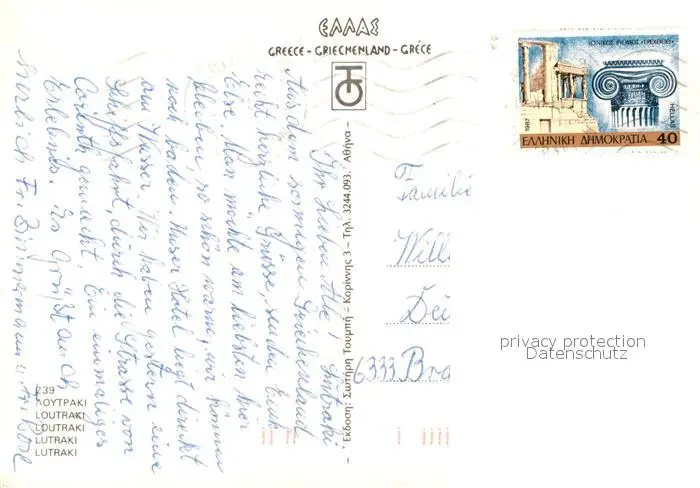 ΕΛΛΑΣ
GREECE - GRIECHENLAND - GRÉCE
ΙΩΝΙΚΟΣ ΡΥΘΜΟΣ «ΕΡΕΧΘΕΙΟ»
HELLAS
1987
ΕΛΛΗΝΙΚΗ ΔΗΜΟΚΡΑΤΙΑ 40
Loutraki
Ihr Lieben Alle!
Aus dem sonnigen Griechenland
recht herzliche Grüsse, senden Euch
Man möchte am liebsten hier
bleiben so schön warm, wir können
noch baden. Unser Hotel liegt direkt
am Wasser. Wir haben gestern eine
Schiffsfahrt, durch die Strasse von
Corinth gemacht. Ein einmaliges
Erlebnis. Es grüßt auch
herzlich Fr. Zimmermann u.
Εκδοση: Σωτήρη Τουμπή - Κορίννης 3 - Τηλ. 3244.093. Αθήνα -
Familie
Will
6333 Bra
privacy protection
Datenschutz
239
ΛΟΥΤΡΑΚΙ
LOUTRAKI
LOUTRAKI
LUTRAKI
LUTRAKI